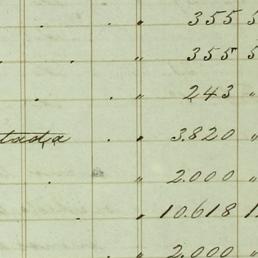 . . " 355 5
. . " 355 5
. . " 243 "
tada . " 3.820 "
. " 2.000 "
. " 10.618 1
" 2.000 "